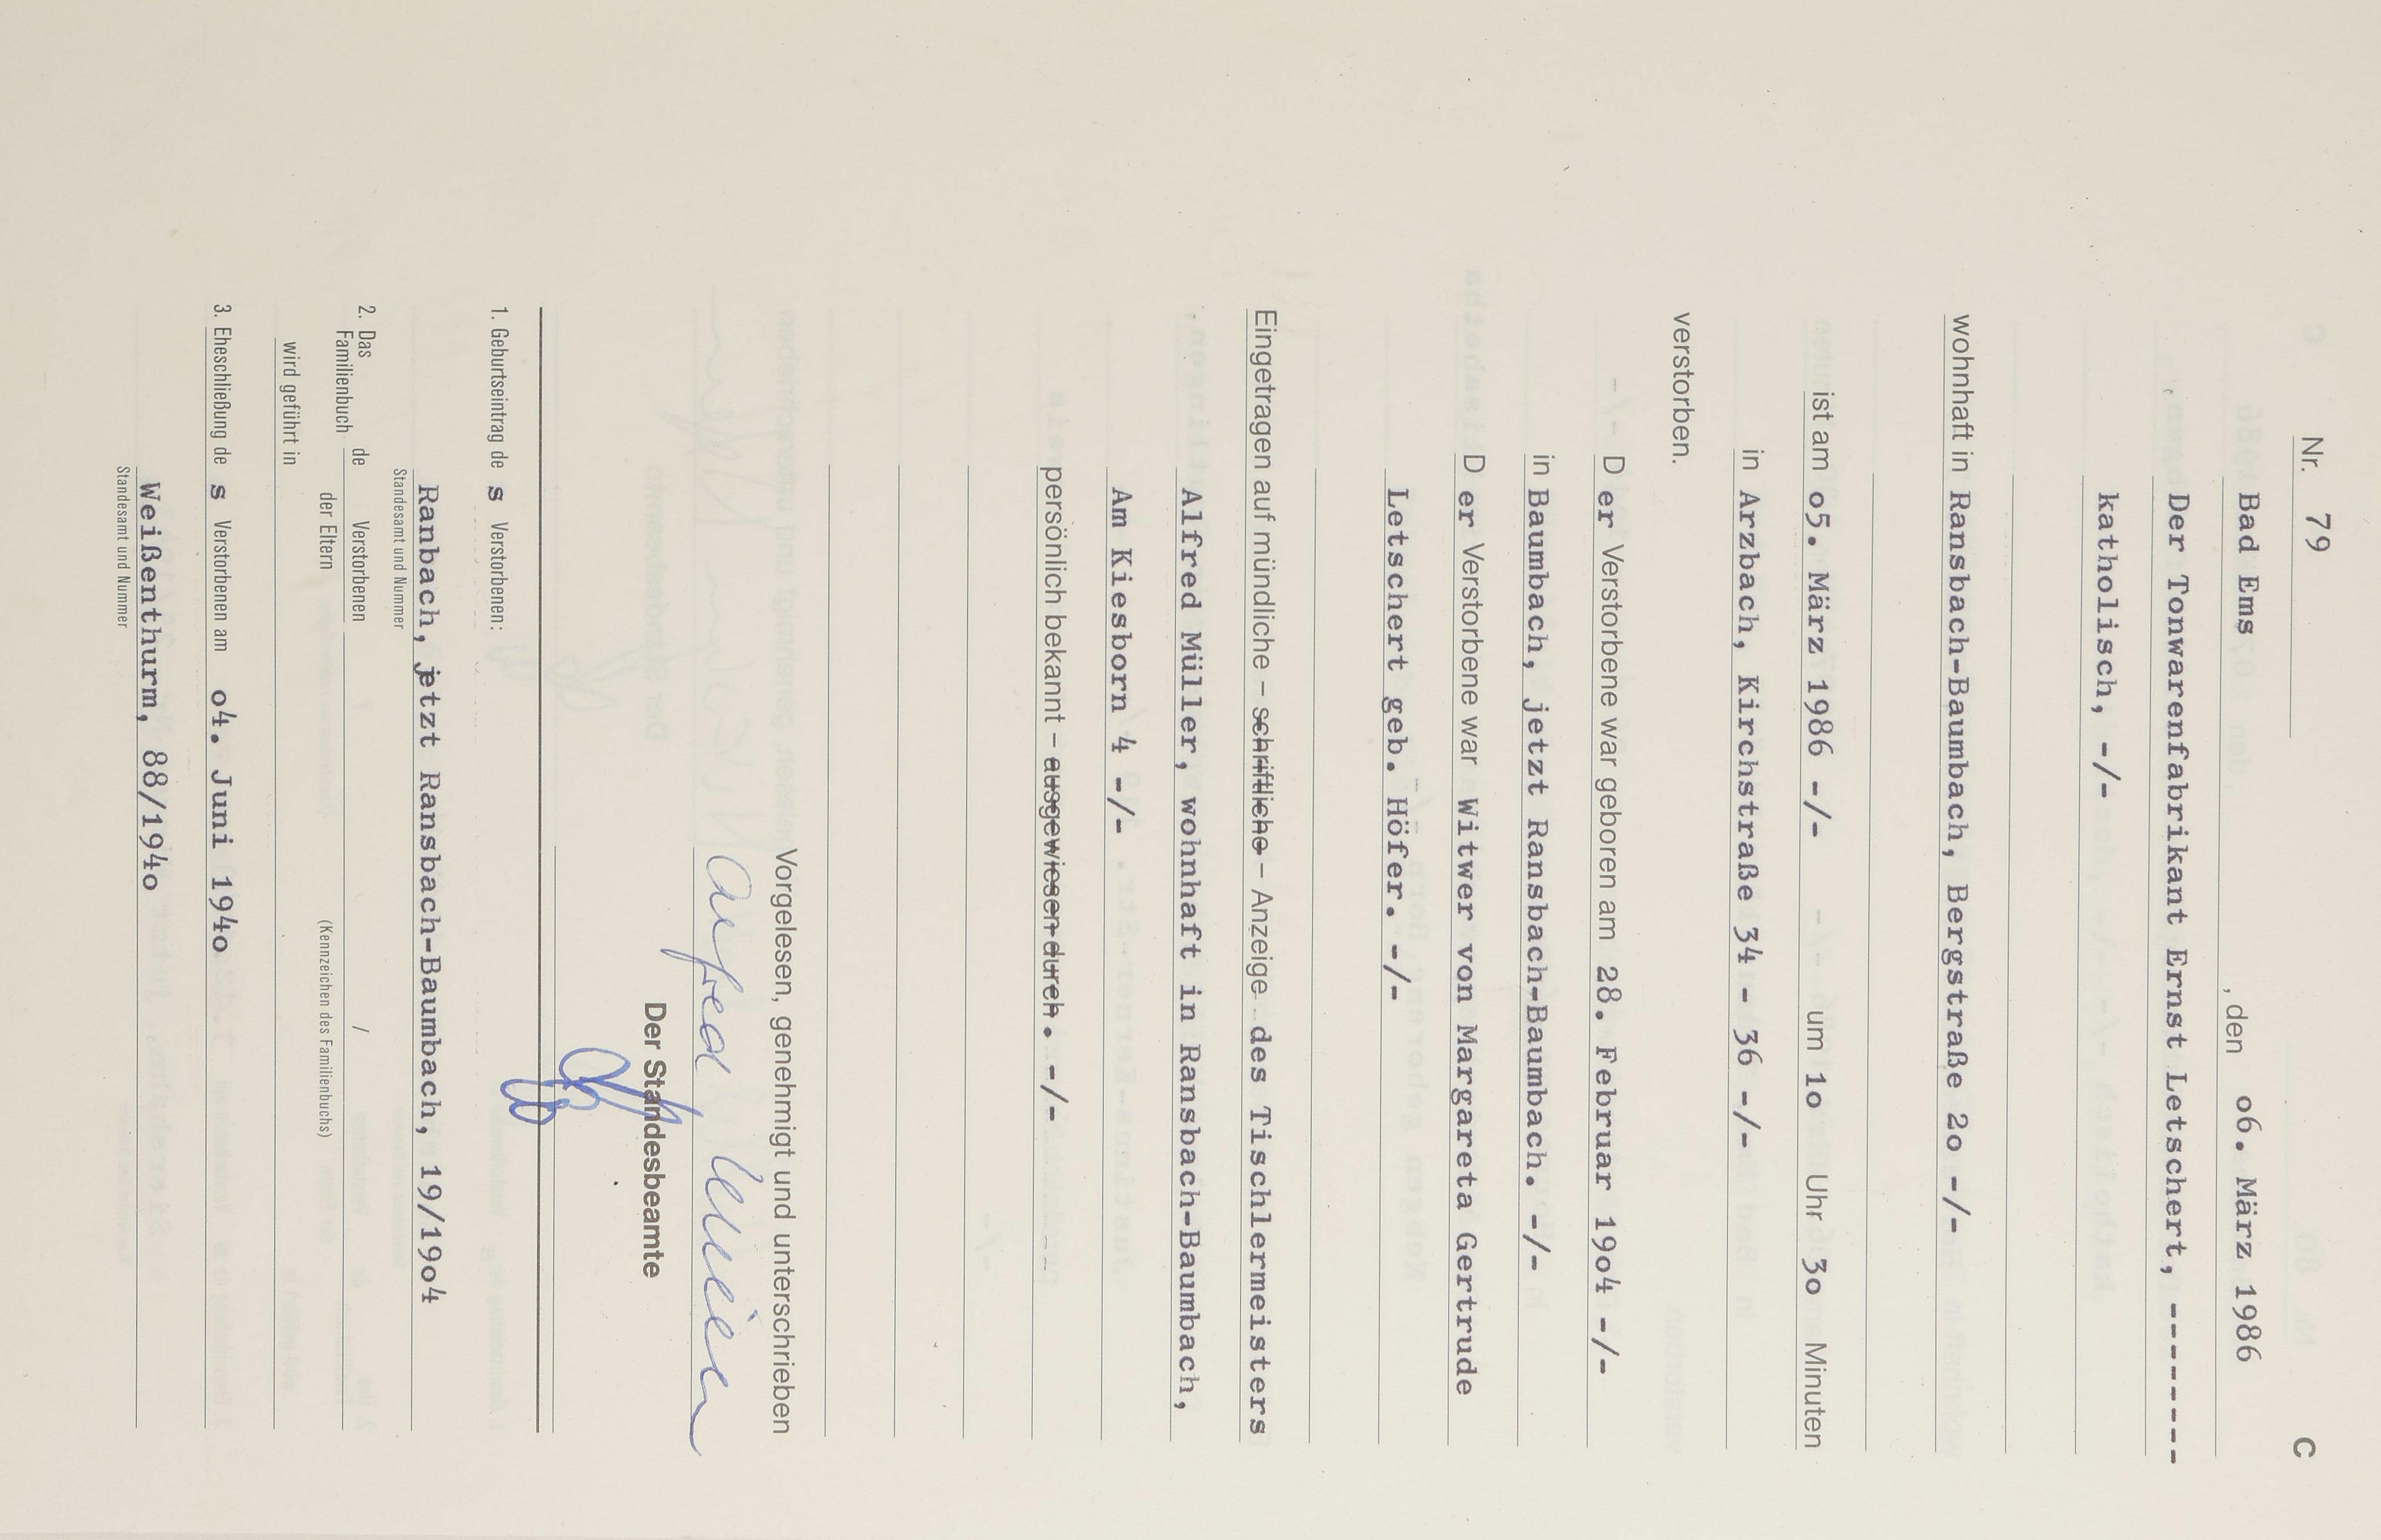 Nr. 79 C
Bad Ems, den o6. März 1986
Der Tonwarenfabrikant Ernst Letschert, --------
katholisch, -/-
wohnhaft in Ransbach-Baumbach, Bergstraße 2o -/-
ist am o5. März 1986 -/- um 1o Uhr 3o Minuten
in Arzbach, Kirchstraße 34 - 36 -/-
verstorben.
D er Verstorbene war geboren am 28. Februar 19o4 -/-
in Baumbach, jetzt Ransbach-Baumbach. -/-
D er Verstorbene war Witwer von Margareta Gertrude
Letschert geb. Höfer. -/-
Eingetragen auf mündliche – schriftliche – Anzeige des Tischlermeisters
Alfred Müller, wohnhaft in Ransbach-Baumbach,
Am Kiesborn 4 -/-
persönlich bekannt – ausgewiesen durch. -/-
Vorgelesen, genehmigt und unterschrieben
Alfred Müller
Der Standesbeamte
1. Geburtseintrag de s Verstorbenen:
Ranbach, jetzt Ransbach-Baumbach, 19/19o4
Standesamt und Nummer
2. Das Familienbuch de Verstorbenen /
der Eltern (Kennzeichen des Familienbuchs)
wird geführt in
3. Eheschließung de s Verstorbenen am o4. Juni 194o
Weißenthurm, 88/194o
Standesamt und Nummer